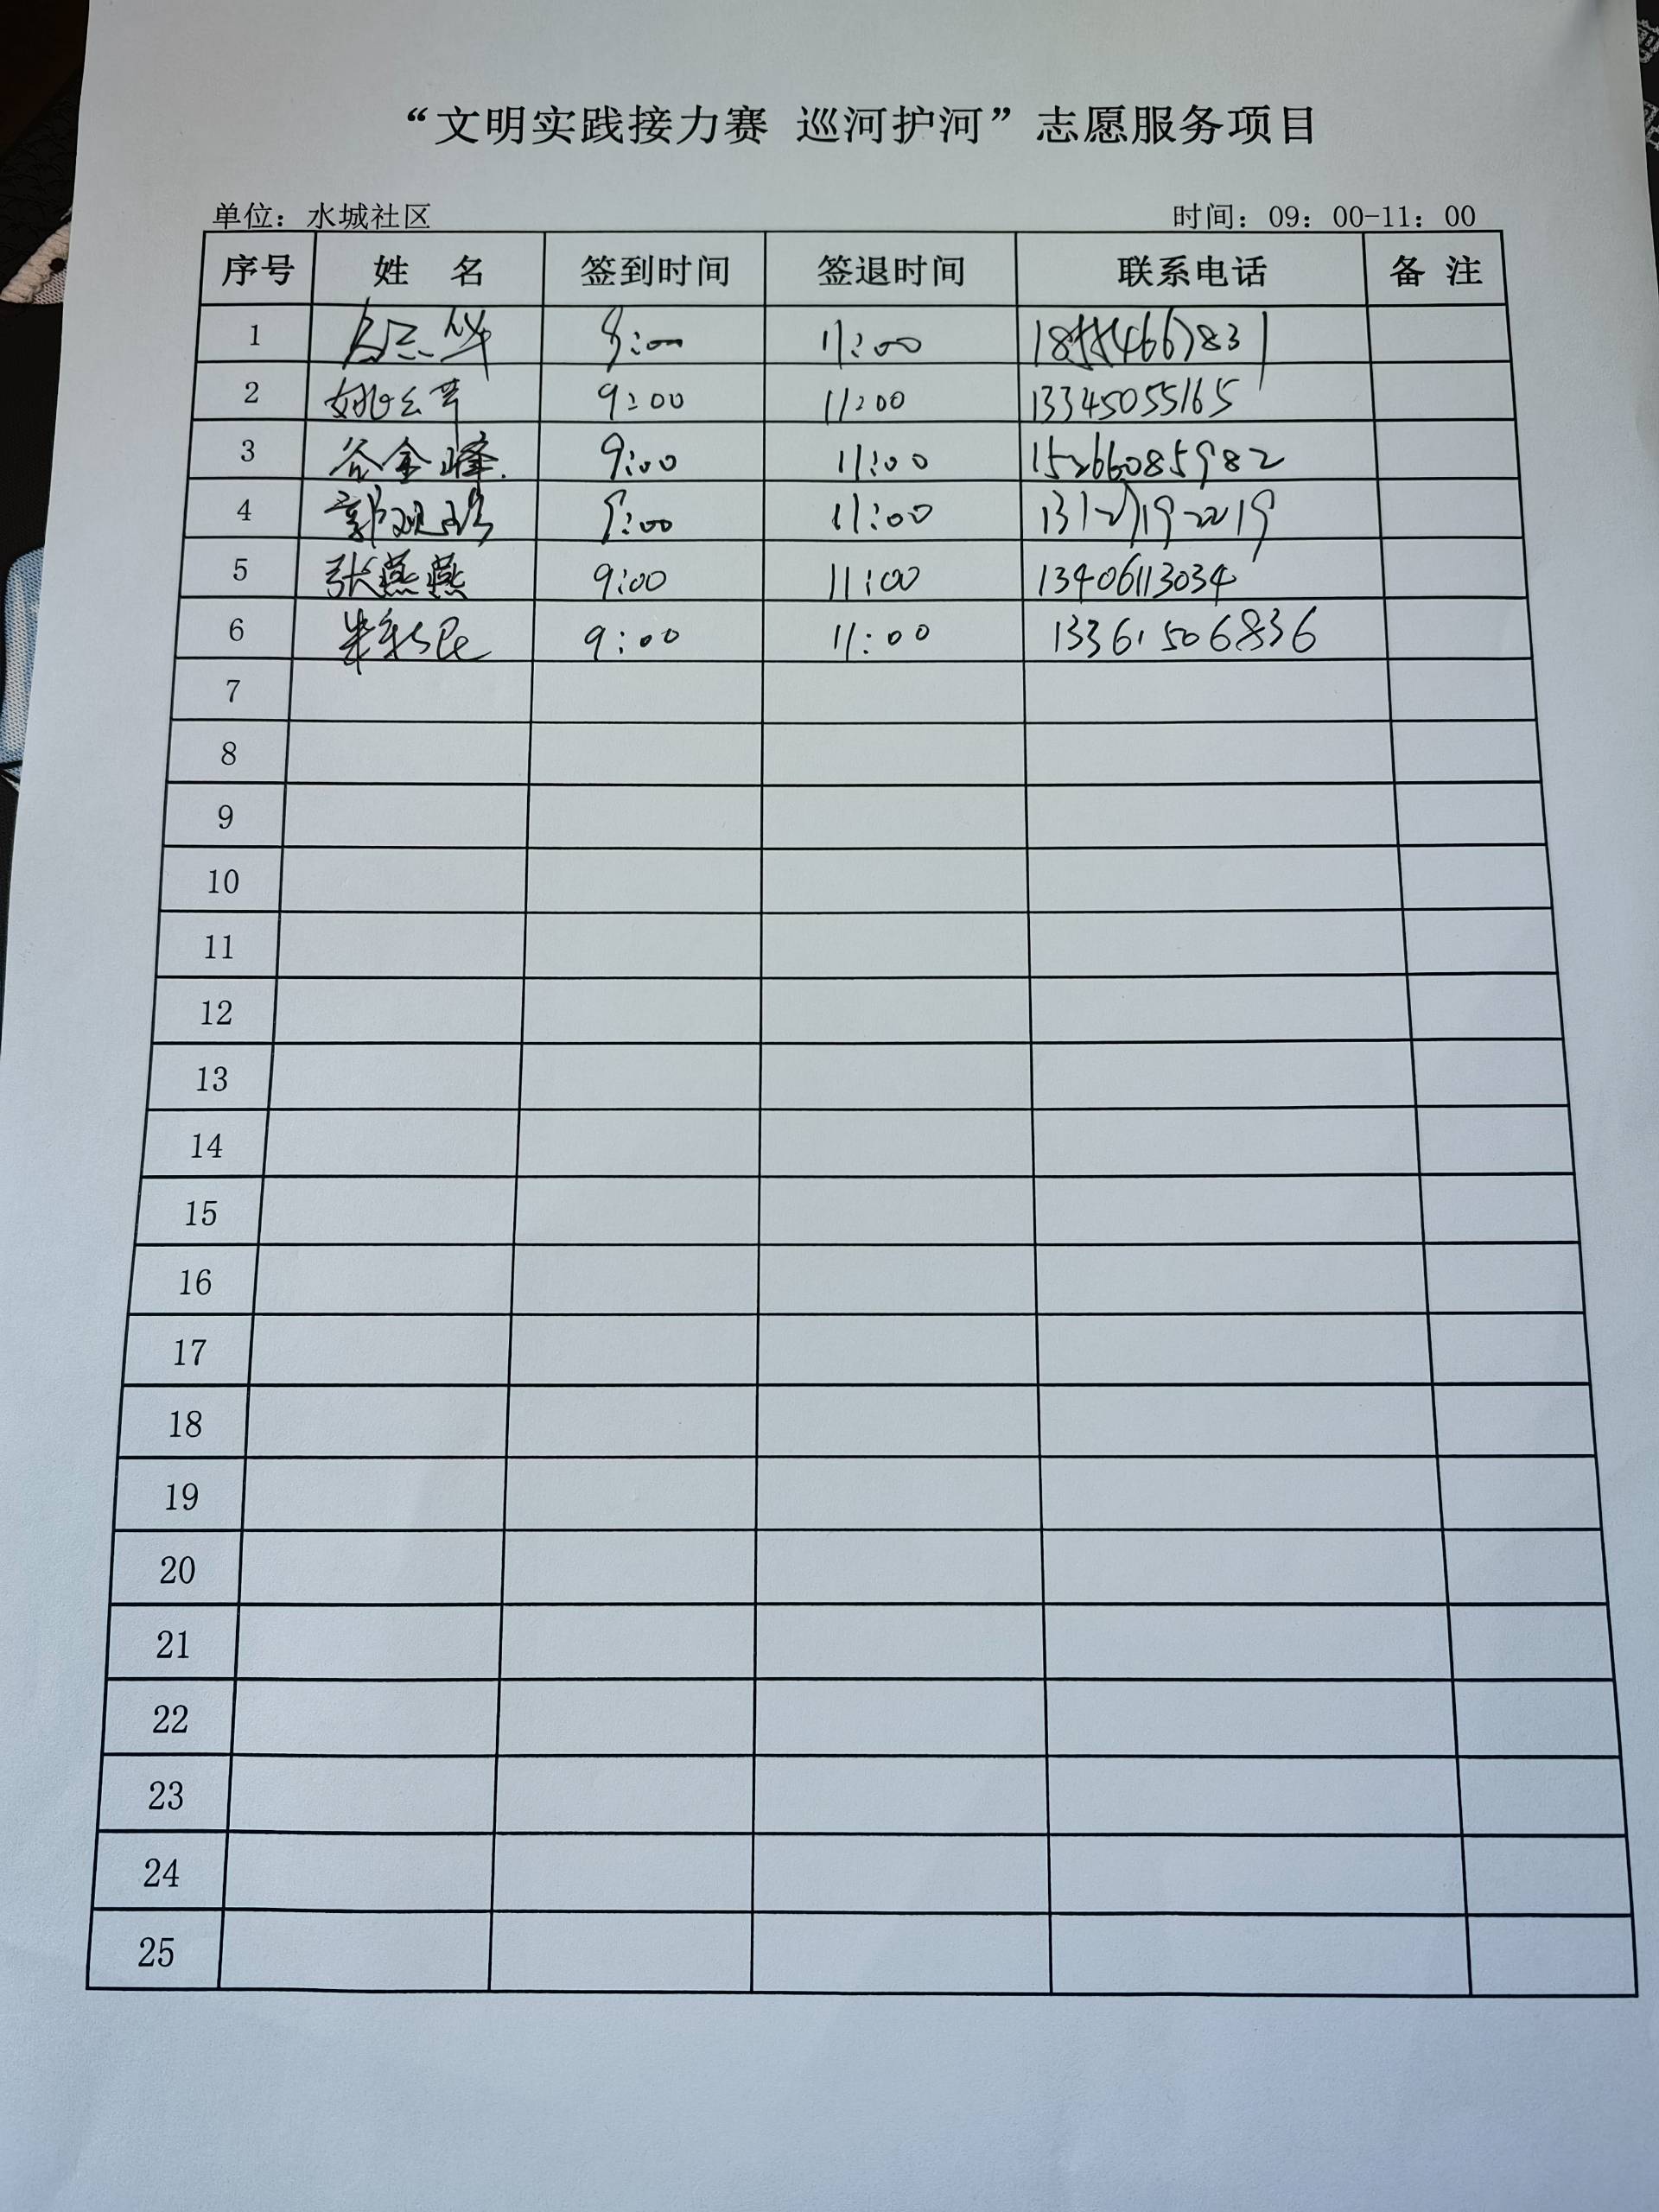 “文明实践接力赛 巡河护河”志愿服务项目
单位：水城社区 时间：09：00-11：00
序号 姓 名 签到时间 签退时间 联系电话 备 注
1 9:00 11:00
2 9:00 11:00 13345055165
3 谷金峰 9:00 11:00 15266085982
4 郭 9:00 11:00
5 张燕燕 9:00 11:00 13406113034
6 9:00 11:00 13361506836
7
8
9
10
11
12
13
14
15
16
17
18
19
20
21
22
23
24
25